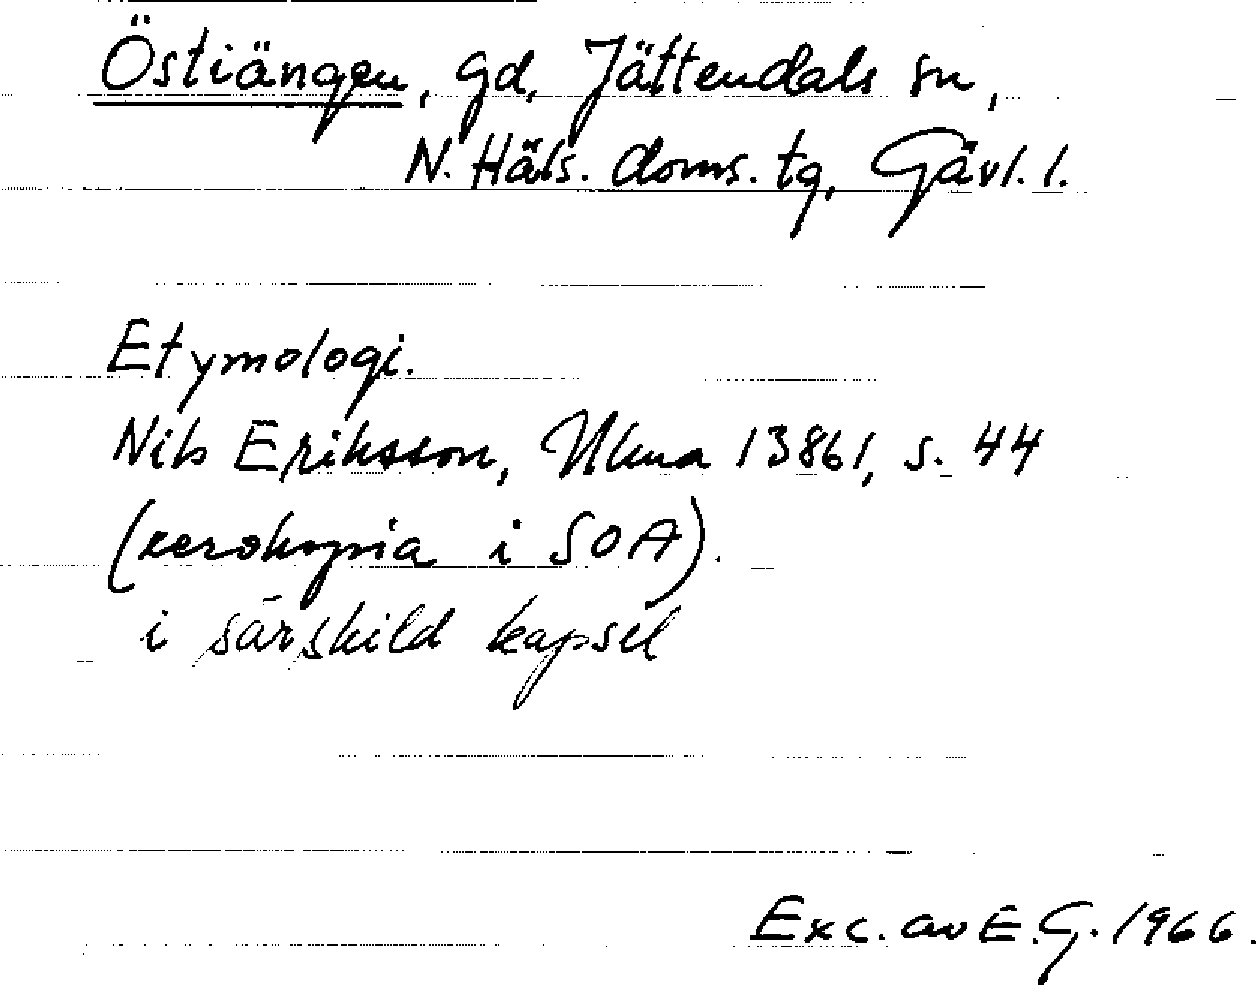 Östiängen, gd, Jättendals sn,
N. Häls. doms. tg, Gävl. l.
Etymologi.
Nils Eriksson, Ulma 13861, s. 44
(xerokopia i SOA).
i särskild kapsel
Exc. av E.G. 1966.